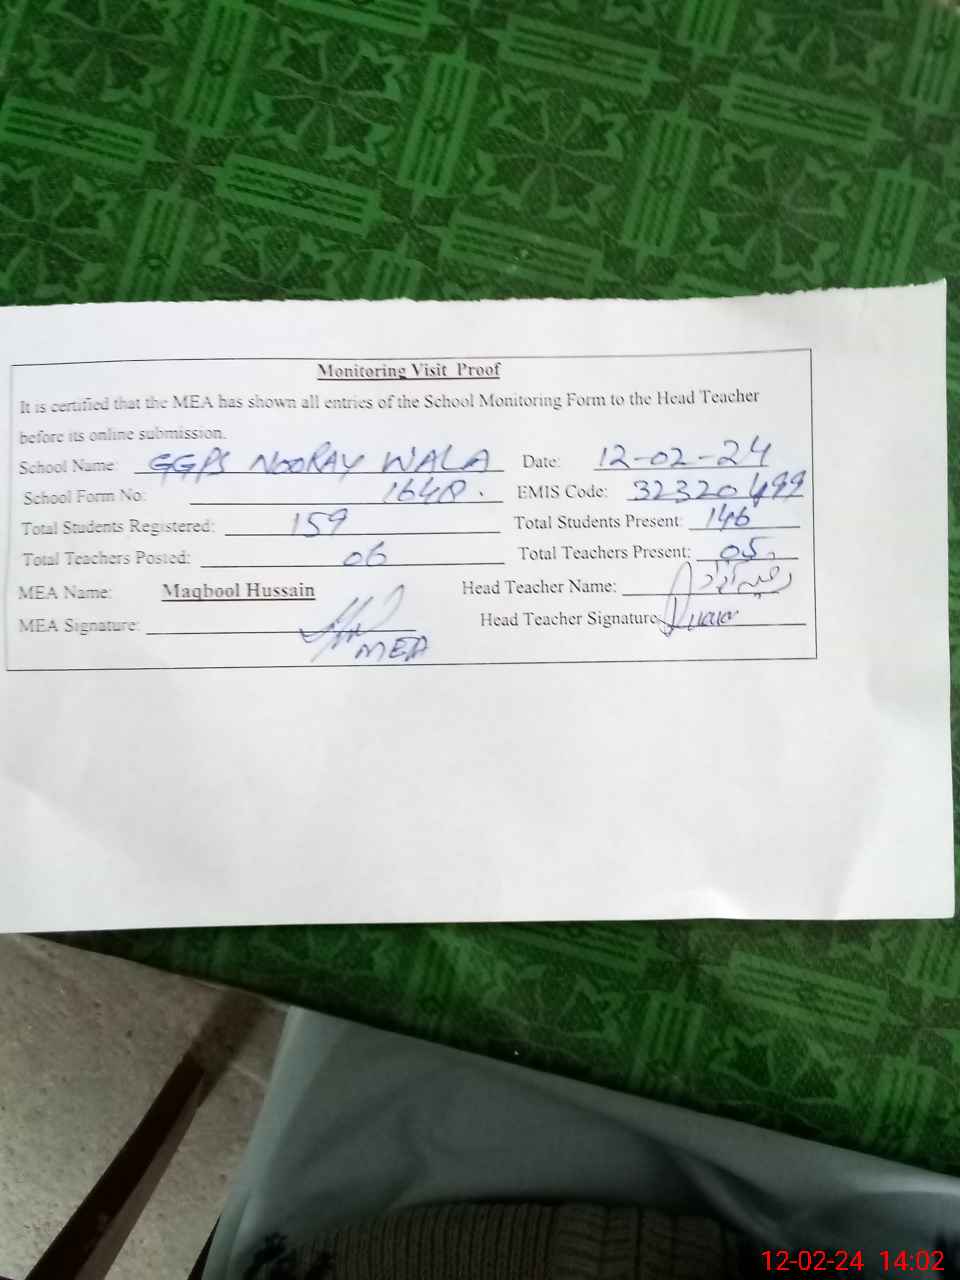 Monitoring Visit Proof
It is certified that the MEA has shown all entries of the School Monitoring Form to the Head Teacher
before its online submission.
School Name: GGPS NOORAY WALA Date: 12-02-24
School Form No: EMIS Code: 32320499
Total Students Registered: 159 Total Students Present: 146
Total Teachers Posted: 06 Total Teachers Present: 05
MEA Name: Maqbool Hussain Head Teacher Name:
MEA Signature: MEA Head Teacher Signature:
12-02-24 14:02